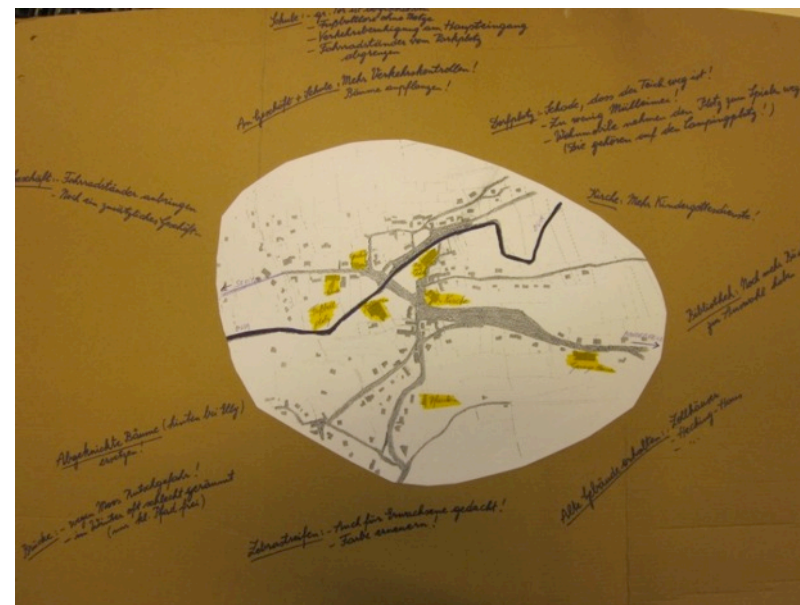 Schule:
- Fußballtore ohne Netze
- Verkehrsberuhigung am Haupteingang
- Fahrradständer vom Parkplatz
abgrenzen
An Geschäft + Schule: Mehr Verkehrskontrollen!
Bäume anpflanzen!
Dorfplatz: - Schade, dass der Teich weg ist!
- Zu wenig Mülleimer!
- Wohnmobile nehmen den Platz zum Spielen weg
(Die gehören auf den Campingplatz!)
Geschäft: - Fahrradständer anbringen
- Noch ein zusätzliches Geschäft
Kirche: Mehr Kindergottesdienste!
Bibliothek: Noch mehr
zur Auswahl haben
Abgeknickte Bäume (hinten bei Elly)
ersetzen!
Brücke: - wegen Moos Rutschgefahr!
- im Winter oft schlecht geräumt
(nur kl. Pfad frei)
Zebrastreifen: - Auch für Erwachsene gedacht!
- Farbe erneuern!
Alte Gebäude erhalten: Zollhäuser
- Hecking-Haus
- ...